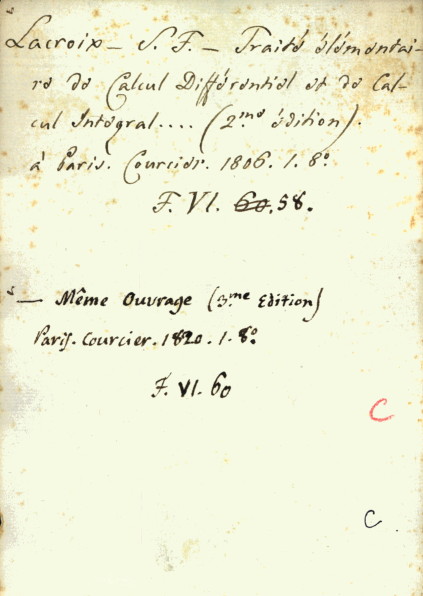 Lacroix — S. F. — Traité élémentai-
re de Calcul Différentiel et de Cal-
cul Intégral.... (2.me édition).
à Paris. Courcier. 1806. 1. 8º
F. VI. 60. 58.
— Même Ouvrage (3.me Edition)
Paris. Courcier. 1820. 1. 8º
F. VI. 60
C
C